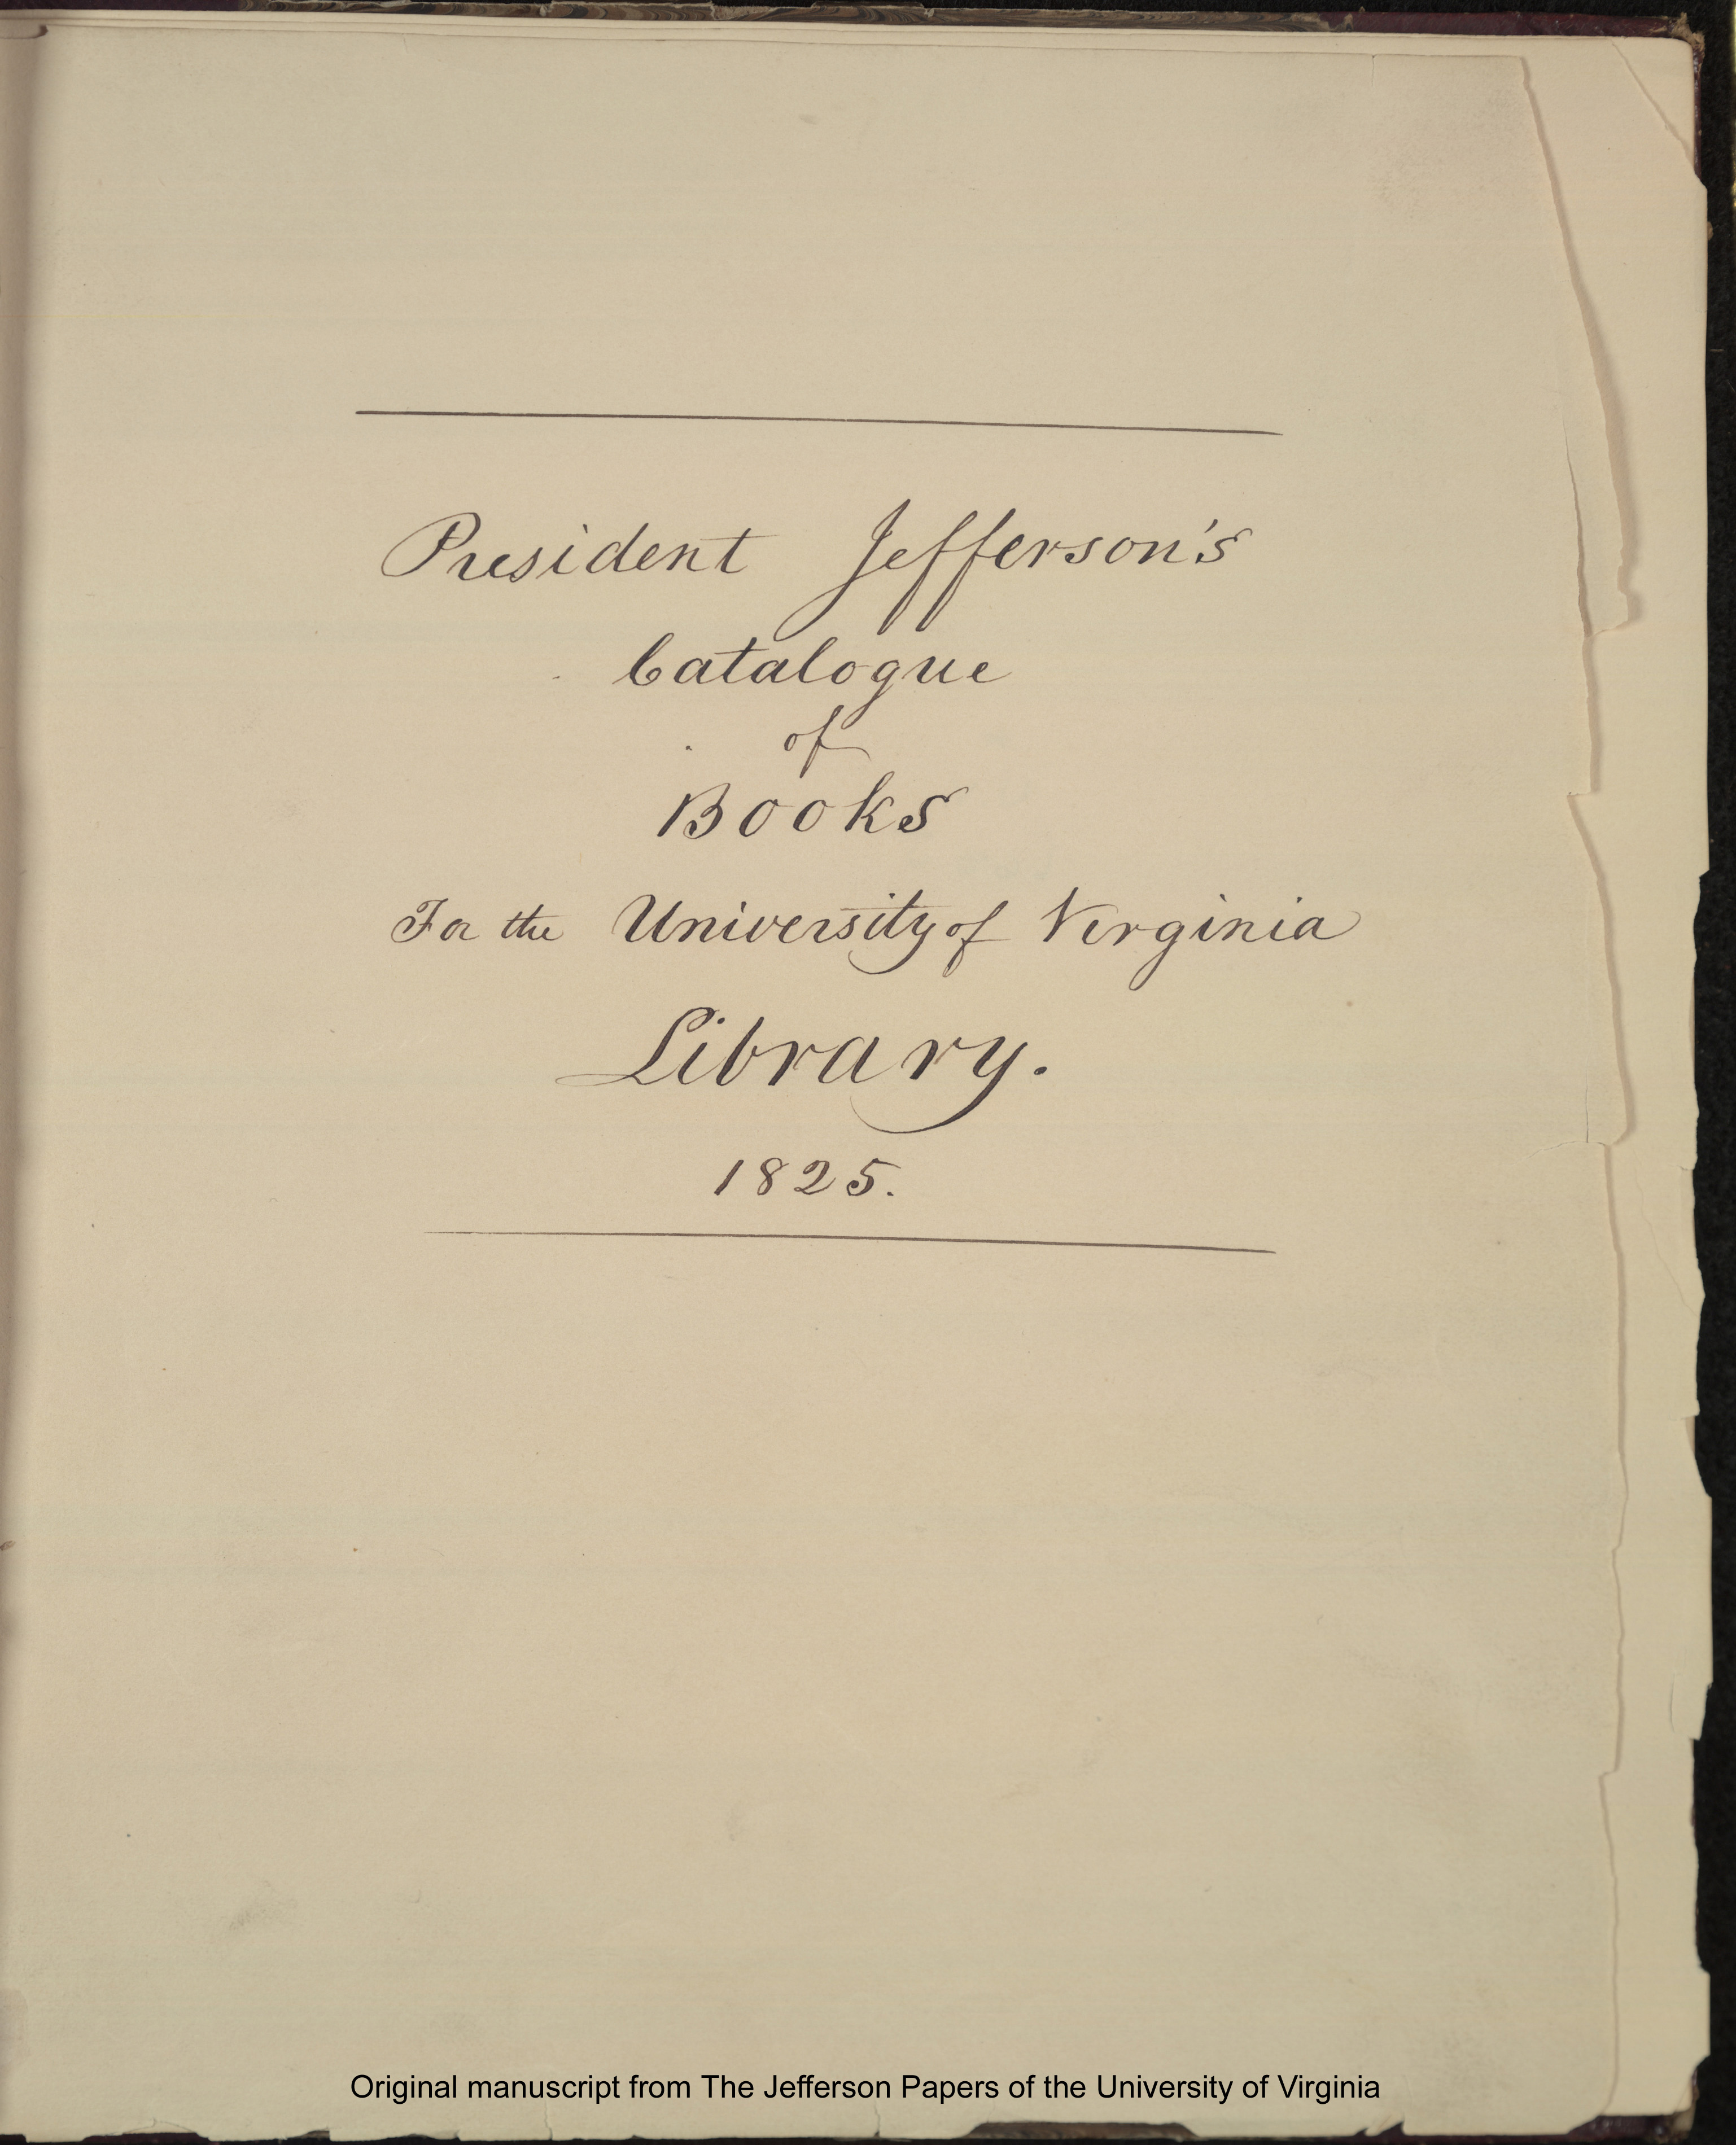 President Jefferson's
Catalogue
of
Books
For the University of Virginia
Library.
1825.
Original manuscript from The Jefferson Papers of the University of Virginia